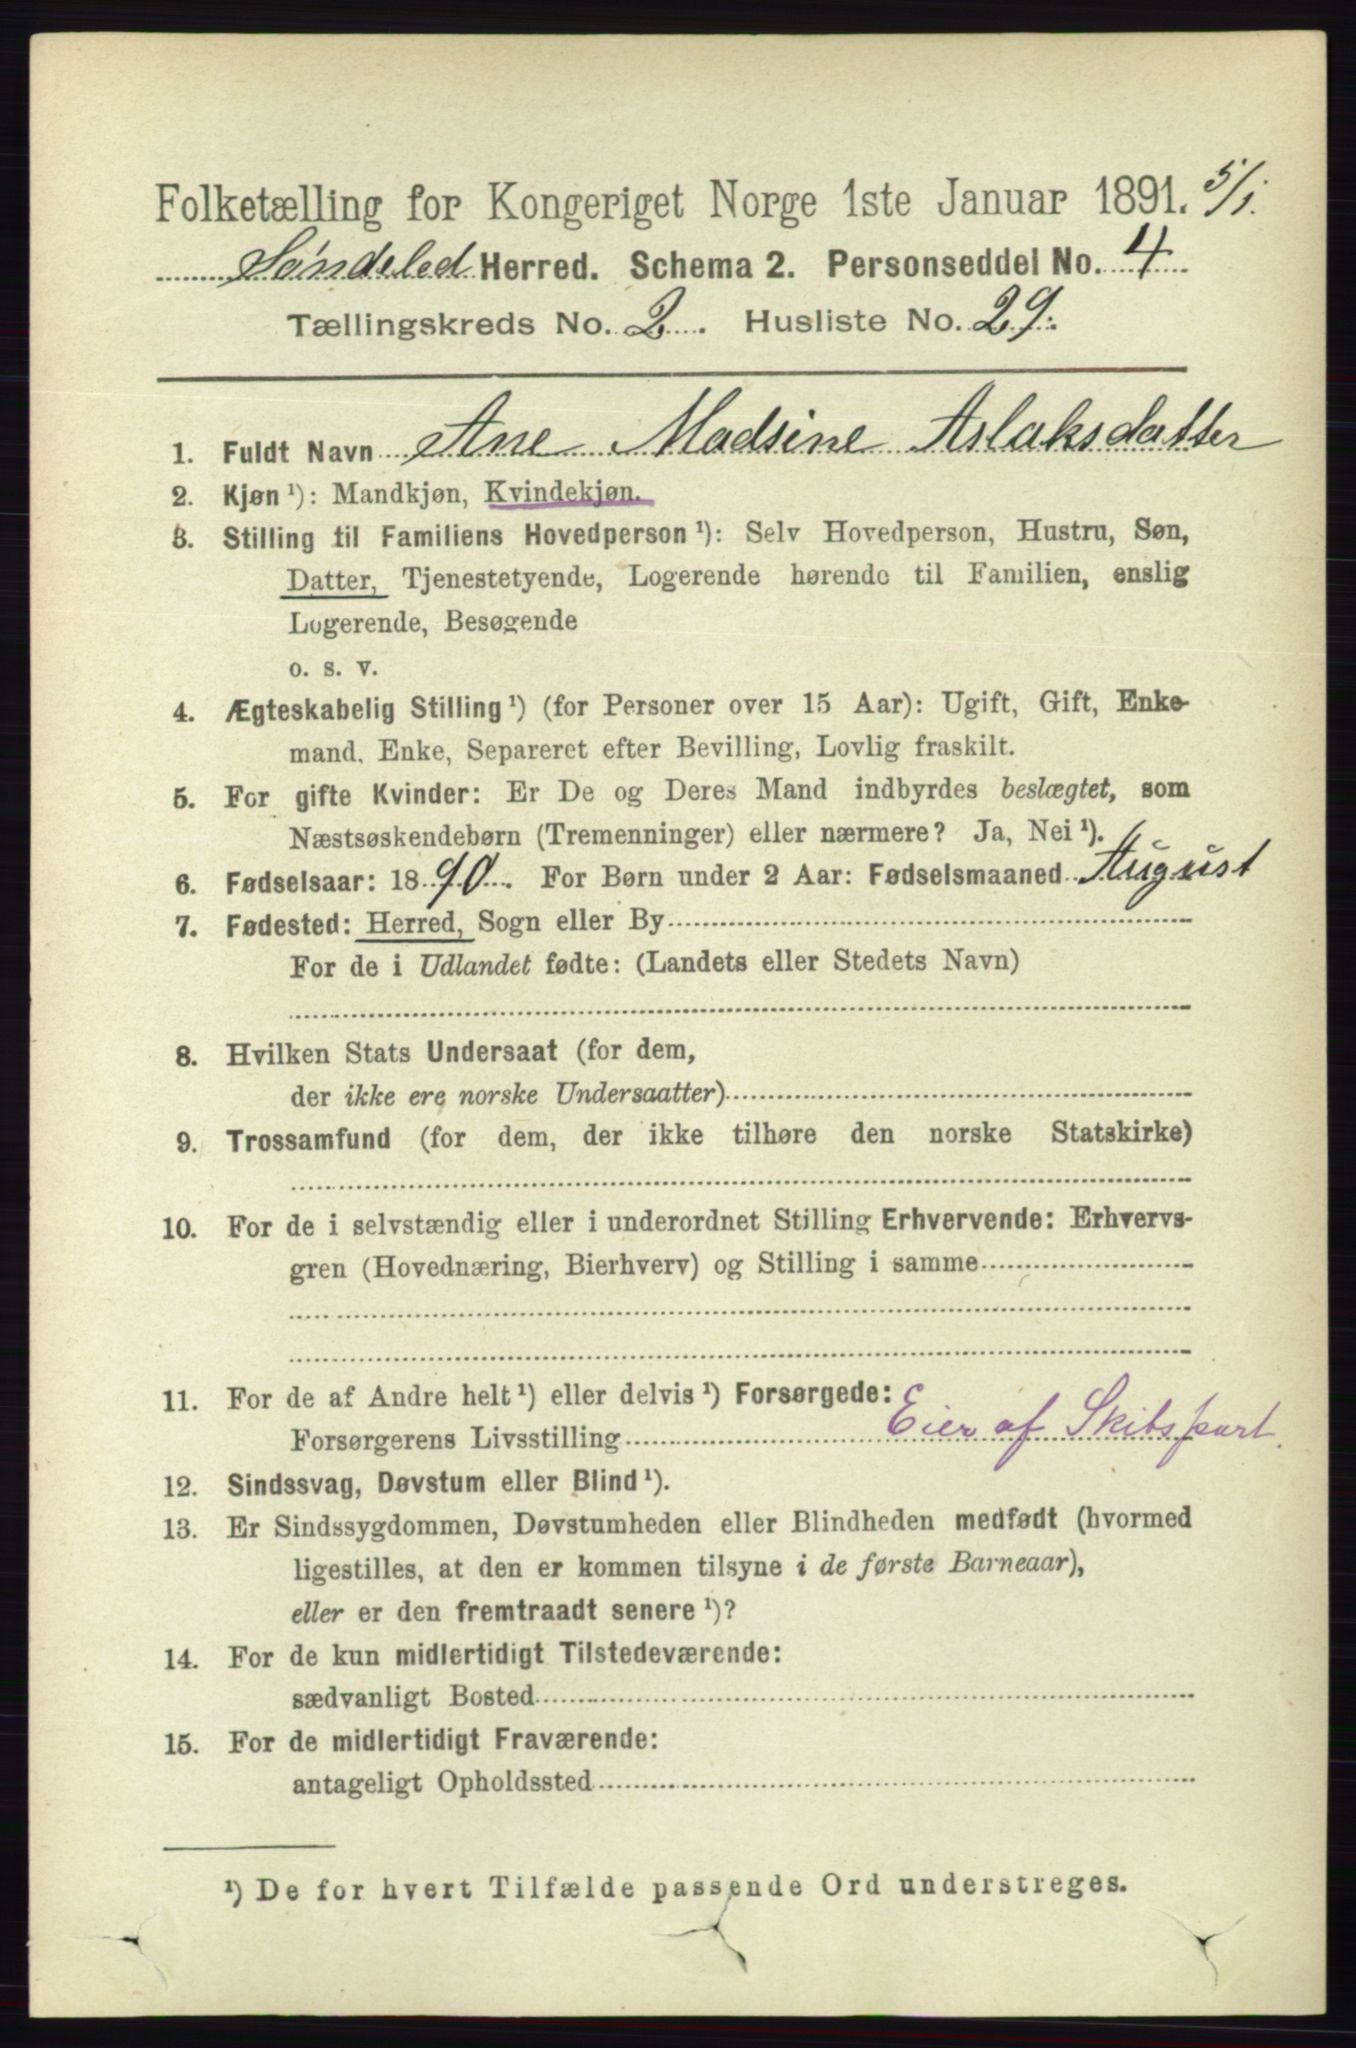 Folketælling for Kongeriget Norge 1ste Januar 1891. 5/1.
Søndeled Herred. Schema 2. Personseddel No. 4
Tællingskreds No. 2. Husliste No. 29.
1. Fuldt Navn Ane Madsine Aslaksdatter
2. Kjøn ¹): Mandkjøn, Kvindekjøn.
3. Stilling til Familiens Hovedperson ¹): Selv Hovedperson, Hustru, Søn,
Datter, Tjenestetyende, Logerende hørende til Familien, enslig
Logerende, Besøgende
o. s. v.
4. Ægteskabelig Stilling ¹) (for Personer over 15 Aar): Ugift, Gift, Enke-
mand, Enke, Separeret efter Bevilling, Lovlig fraskilt.
5. For gifte Kvinder: Er De og Deres Mand indbyrdes beslægtet, som
Næstsøskendebørn (Tremenninger) eller nærmere? Ja, Nei ¹).
6. Fødselsaar: 1890. For Børn under 2 Aar: Fødselsmaaned August
7. Fødested: Herred, Sogn eller By
For de i Udlandet fødte: (Landets eller Stedets Navn)
8. Hvilken Stats Undersaat (for dem,
der ikke ere norske Undersaatter)
9. Trossamfund (for dem, der ikke tilhøre den norske Statskirke)
10. For de i selvstændig eller i underordnet Stilling Erhvervende: Erhvervs-
gren (Hovednæring, Bierhverv) og Stilling i samme
11. For de af Andre helt ¹) eller delvis ¹) Forsørgede:
Forsørgerens Livsstilling Eier af Skibspart.
12. Sindssvag, Døvstum eller Blind ¹).
13. Er Sindssygdommen, Døvstumheden eller Blindheden medfødt (hvormed
ligestilles, at den er kommen tilsyne i de første Barneaar),
eller er den fremtraadt senere ¹)?
14. For de kun midlertidigt Tilstedeværende:
sædvanligt Bosted
15. For de midlertidigt Fraværende:
antageligt Opholdssted
¹) De for hvert Tilfælde passende Ord understreges.